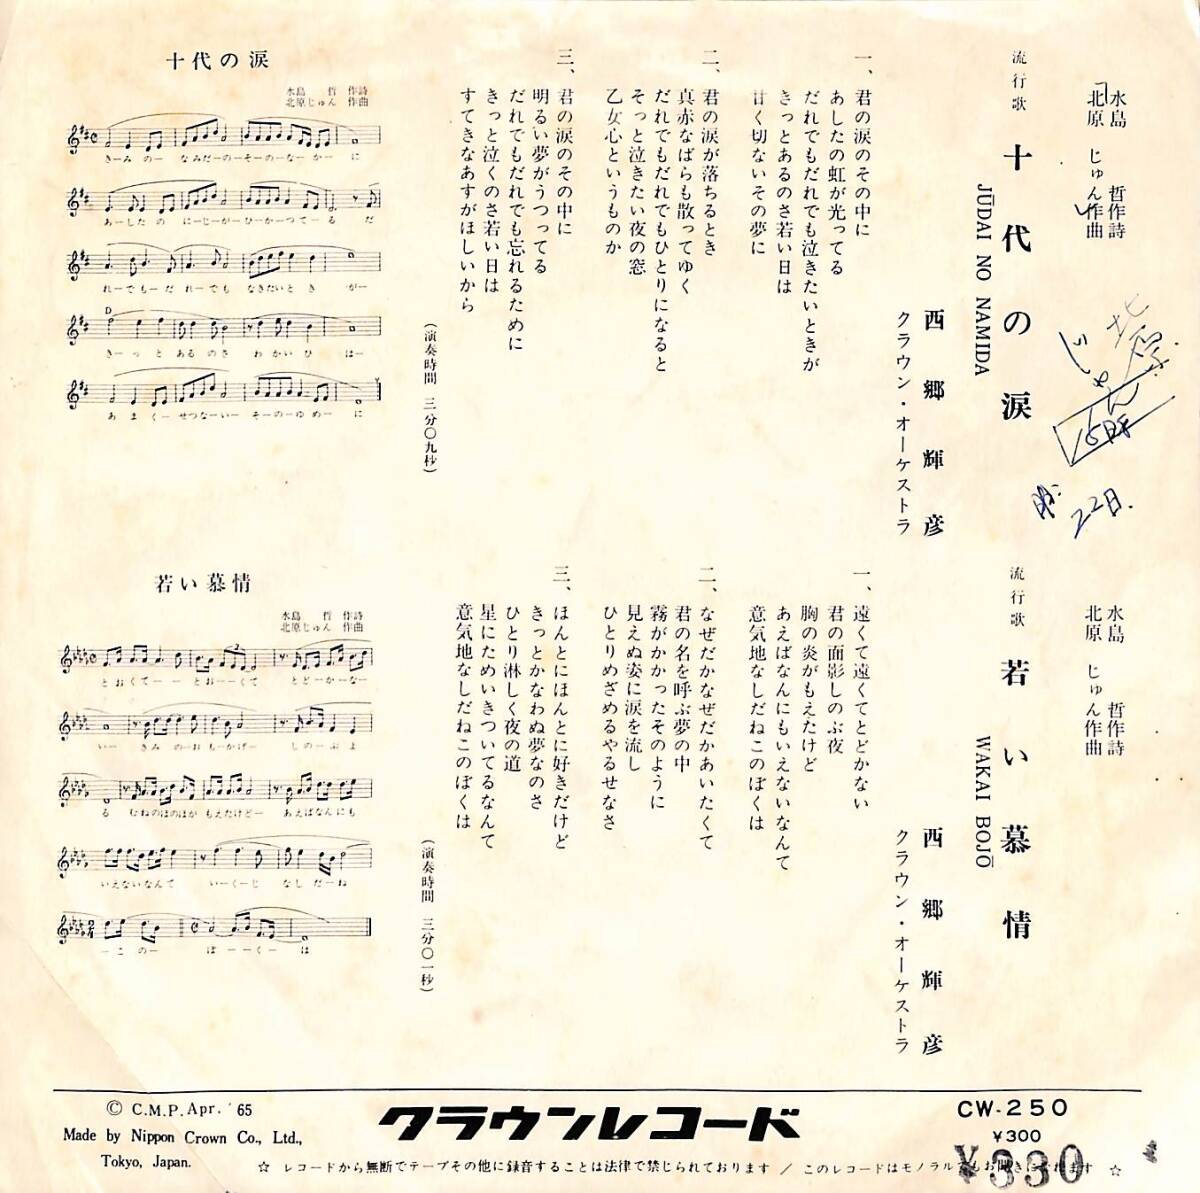 水島 哲作詩
北原 じゅん作曲
流行歌 十代の涙
JŪDAI NO NAMIDA
西郷輝彦
クラウン・オーケストラ
一、君の涙のその中に
あしたの虹が光ってる
だれでもだれでも泣きたいときが
きっとあるのさ若い日は
甘く切ないその夢に
二、君の涙が落ちるとき
真赤なばらも散ってゆく
だれでもだれでもひとりになると
そっと泣きたい夜の窓
乙女心というものか
三、君の涙のその中に
明るい夢がうつってる
だれでもだれでも忘れるために
きっと泣くのさ若い日は
すてきなあすがほしいから
(演奏時間 三分〇九秒)
十代の涙
水島 哲 作詩
北原じゅん 作曲
きーみのー なみだーのーそーのーなーかーに
あーしたの にーじーがーひーかーつてーる だ
れーでもーだ れーでも なきたいとき がー
D
きーっと あるのさ わかいひ はー
あまくーせつなーいー そーのーゆめーに
北原
じゅん
22日.
水島 哲作詩
北原 じゅん作曲
流行歌 若い慕情
WAKAI BOJŌ
西郷輝彦
クラウン・オーケストラ
一、遠くて遠くてとどかない
君の面影しのぶ夜
胸の炎がもえたけど
あえばなんにもいえないなんて
意気地なしだねこのぼくは
二、なぜだかなぜだかあいたくて
君の名を呼ぶ夢の中
霧がかかったそのように
見えぬ姿に涙を流し
ひとりめざめるやるせなさ
三、ほんとにほんとに好きだけど
きっとかなわぬ夢なのさ
ひとり淋しく夜の道
星にためいきついてるなんて
意気地なしだねこのぼくは
(演奏時間 三分〇一秒)
若い慕情
水島 哲 作詩
北原じゅん 作曲
とおくてーーとおーくて とどーかーなー
いー きみ のーおもーかげー しのーぶよ
る むねのほのほが もえたけどー あえばなんにも
いえないなんて いーくーじ なしだーね
ーこのー ぼーくーは
© C.M.P. Apr. '65
Made by Nippon Crown Co., Ltd.,
Tokyo, Japan.
クラウンレコード
CW-250
¥300
¥330
☆ レコードから無断でテープその他に録音することは法律で禁じられております / このレコードはモノラルでもお聞きになれます ☆